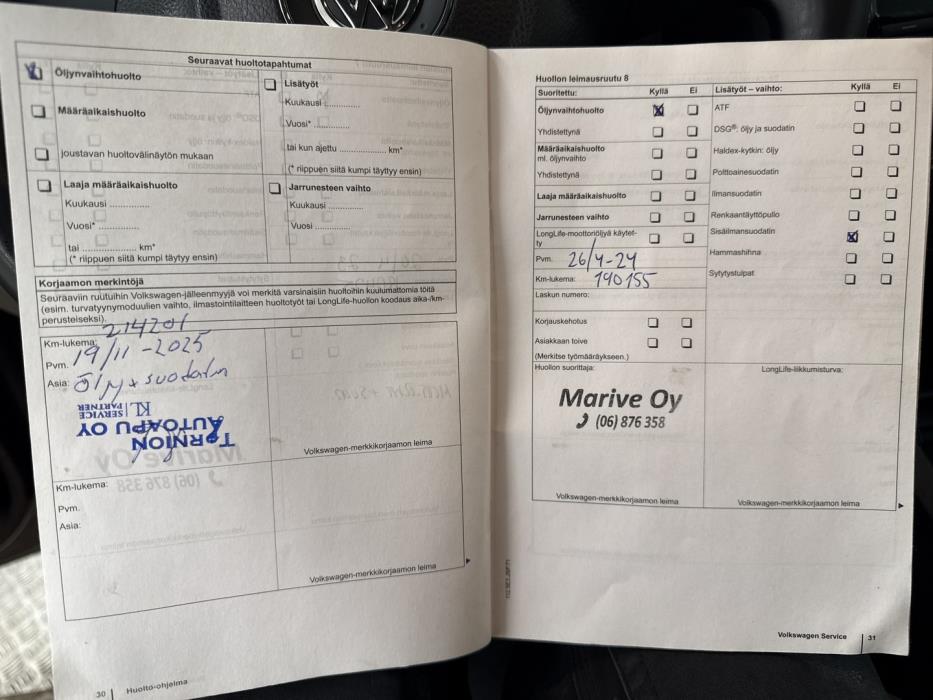 Seuraavat huoltotapahtumat
Öljynvaihtohuolto
Määräaikaishuolto
joustavan huoltovälinäytön mukaan
Lisätyöt
Kuukausi ..............
Vuosi* ..............
tai kun ajettu ................. km*
(* riippuen siitä kumpi täytyy ensin)
Laaja määräaikaishuolto
Kuukausi ..............
Vuosi* ..............
tai .................. km*
(* riippuen siitä kumpi täytyy ensin)
Jarrunesteen vaihto
Kuukausi ..............
Vuosi ..............
Korjaamon merkintöjä
Seuraaviin ruutuihin Volkswagen-jälleenmyyjä voi merkitä varsinaisiin huoltoihin kuulumattomia töitä
(esim. turvatyynymoduulien vaihto, ilmastointilaitteen huoltotyöt tai LongLife-huollon koodaus aika-/km-
perusteiseksi).
Km-lukema: 214201
Pvm. 19/11-2025
Asia: Öljy + suodatin
TORNION
AUTOAPU OY
KL SERVICE
PARTNER
Volkswagen-merkkikorjaamon leima
Km-lukema:
Pvm.
Asia:
Volkswagen-merkkikorjaamon leima
30 Huolto-ohjelma
Huollon leimausruutu 8
Suoritettu: Kyllä Ei
Öljynvaihtohuolto
Yhdistettynä
Määräaikaishuolto
ml. öljynvaihto
Yhdistettynä
Laaja määräaikaishuolto
Jarrunesteen vaihto
LongLife-moottoriöljyä käytet-
ty
Pvm. 26/4-24
Km-lukema: 190155
Laskun numero:
Korjauskehotus
Asiakkaan toive
(Merkitse työmääräykseen.)
Lisätyöt – vaihto: Kyllä Ei
ATF
DSG®: öljy ja suodatin
Haldex-kytkin: öljy
Polttoainesuodatin
Ilmansuodatin
Renkaantäyttöpullo
Sisäilmansuodatin
Hammashihna
Sytytystulpat
Huollon suorittaja:
Marive Oy
(06) 876 358
Volkswagen-merkkikorjaamon leima
LongLife-liikkumisturva:
Volkswagen-merkkikorjaamon leima
Volkswagen Service 31